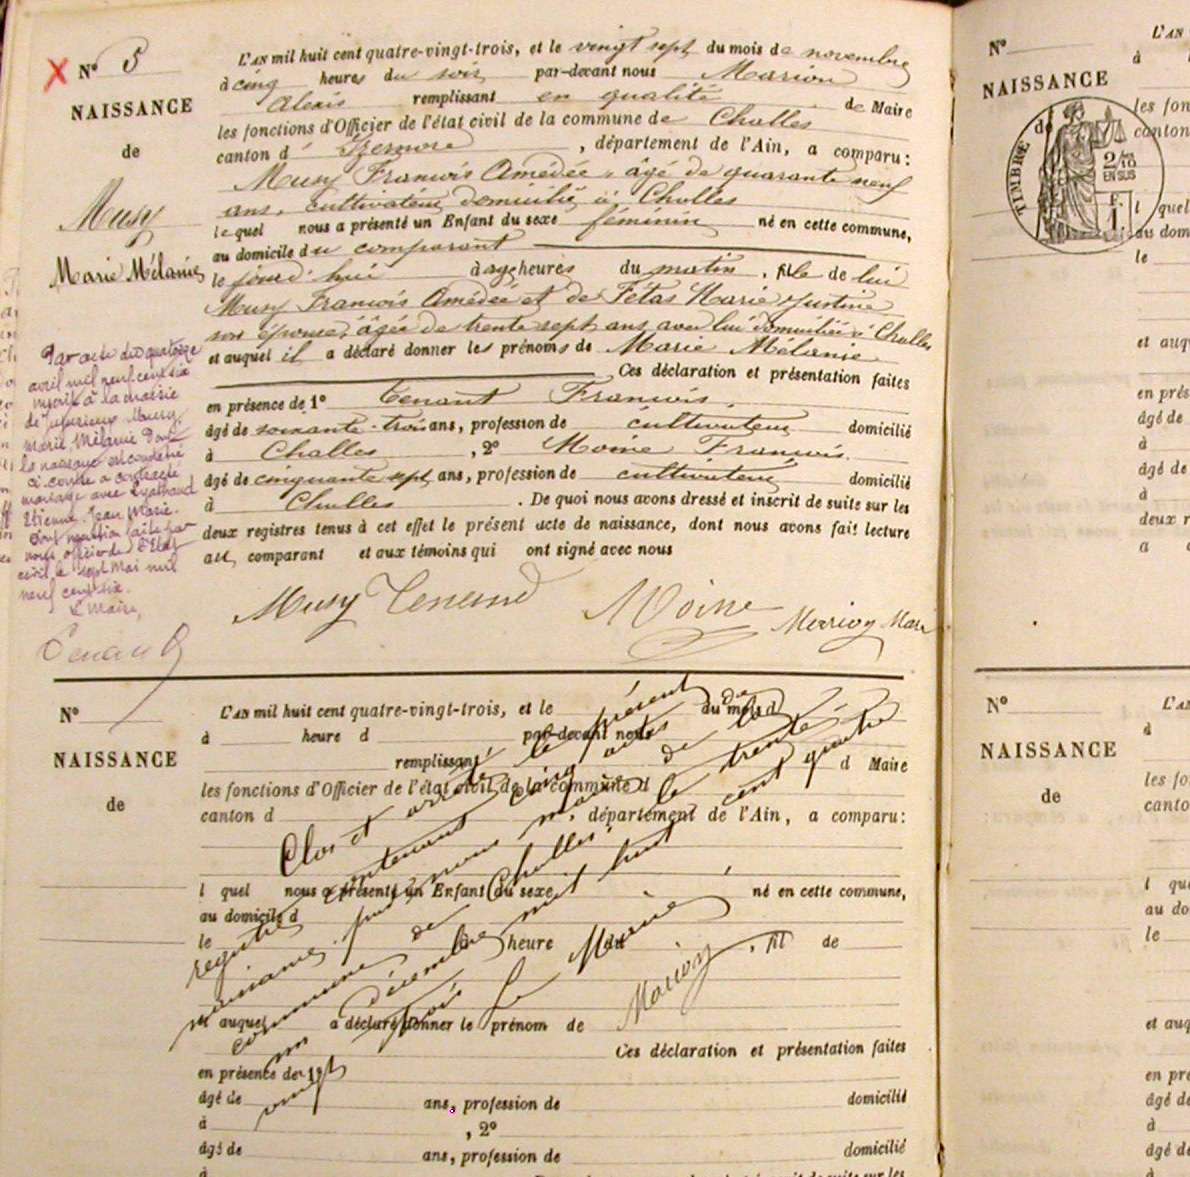 N° 5
NAISSANCE
de
Musy
Marie Mélanie
L'AN mil huit cent quatre-vingt-trois, et le vingt sept du mois de novembre
à cinq heures du soir par-devant nous Marion
Alexis remplissant en qualité de Maire
les fonctions d'Officier de l'état civil de la commune de Challes
canton d , département de l'Ain, a comparu:
Musy Francois Amédée, âgé de quarante neuf
ans, cultivateur domicilié à Challes
lequel nous a présenté un Enfant du sexe féminin né en cette commune,
au domicile du comparant
le jourd'hui à heures du matin, fille de lui
Musy Francois Amédée et de Fétas Marie Justine
son épouse, âgée de trente sept ans avec lui domiciliée à Challes
et auquel il a déclaré donner les prénoms de Marie Mélanie
Ces déclaration et présentation faites
en présence de 1° Tenant Francois,
âgé de soixante-trois ans, profession de cultivateur domicilié
à Challes , 2° Moine Francois.
âgé de cinquante sept ans, profession de cultivateur domicilié
à Challes . De quoi nous avons dressé et inscrit de suite sur les
deux registres tenus à cet effet le présent acte de naissance, dont nous avons fait lecture
au comparant et aux témoins qui ont signé avec nous
Musy Tenand Moine Marion Maire
Par acte du quatorze
avril mil neuf cent six
inscrit à la mairie
de Jujurieux Musy
Marie Mélanie dont
la naissance est constatée
ci-contre a contracté
mariage avec
Etienne Jean Marie.
Dont mention faite par
nous officier de l'Etat
civil le sept Mai mil
neuf cent six.
Le Maire,
Tenand
N°
NAISSANCE
de
L'AN mil huit cent quatre-vingt-trois, et le du mois d
à heure d par-devant nous
remplissant d Maire
les fonctions d'Officier de l'état civil de la commune d
canton d , département de l'Ain, a comparu:
l quel nous a présenté un Enfant du sexe né en cette commune,
au domicile d
le à heure du , fil de
et auquel a déclaré donner le prénom de
Ces déclaration et présentation faites
en présence de 1°
âgé de ans, profession de domicilié
à , 2°
âgé de ans, profession de domicilié
à
Clos et arrêté le présent
registre contenant cinq actes de
naissance par nous maire de la
commune de Challes, le trente
un Décembre mil huit cent quatre
vingt trois
Le Maire
Marion
N°
NAISSANCE
de
TIMBRE
2/10
EN SUS
F.
1
L'AN
à
les fon
canton
l quel
au dom
le
et auq
en prés
âgé de
à
âgé de
à
deux r
a
N°
NAISSANCE
de
L'AN
à
les fo
canto
l que
au do
le
et auq
en pré
âgé de
à
âgé de
à